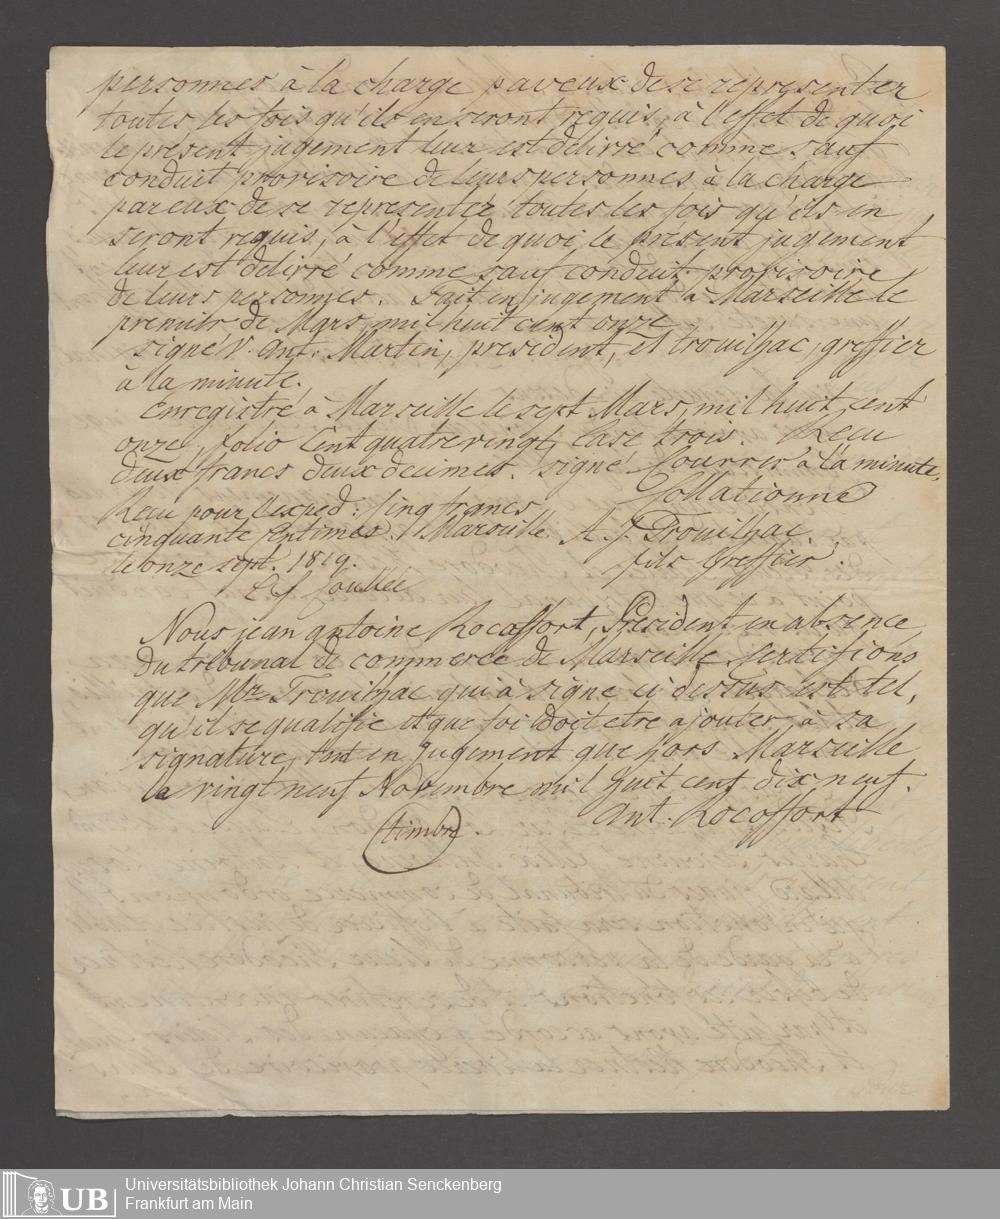 personnes à la charge paveux de se representer
toutes les fois qu'ils en seront requis, à l'effet de quoi
le present jugement leur est delivré comme sauf
conduit provisoire de leurs personnes à la charge
par eux de se representer toutes les fois qu'ils en
seront requis, à l'effet de quoi le present jugement
leur est delivré comme sauf conduit provisoire
de leurs personnes. Fait en jugement à Marseille le
premier de Mars, mil huit cent onze
signé V. Ant. Martin, president, et trouilhac, greffier
à la minute.
Enregistré à Marseille le sept Mars, mil huit cent
onze, folio Cent quatre vingt, Case trois. Recu
deux francs deux decimes. signé à la minute.
Collationné
Recu pour l'exped: Cinq francs
cinquante Centimes. Marseille A. J. Trouilhac.
le onze sept. 1819. fils Greffier.
Nous jean antoine Rocoffort, President en absence
Du tribunal de commerce de Marseille Certifions
que Mr. Trouilhac qui à signé ci dessus est tel,
qu'il se qualifie et que foi doit etre ajouter à sa
signature, tant en Jugement que hors Marseille
le vingt neuf Novembre mil huit cent dix neuf.
Ant. Rocoffort
(timbré).
UB
Universitätsbibliothek Johann Christian Senckenberg
Frankfurt am Main